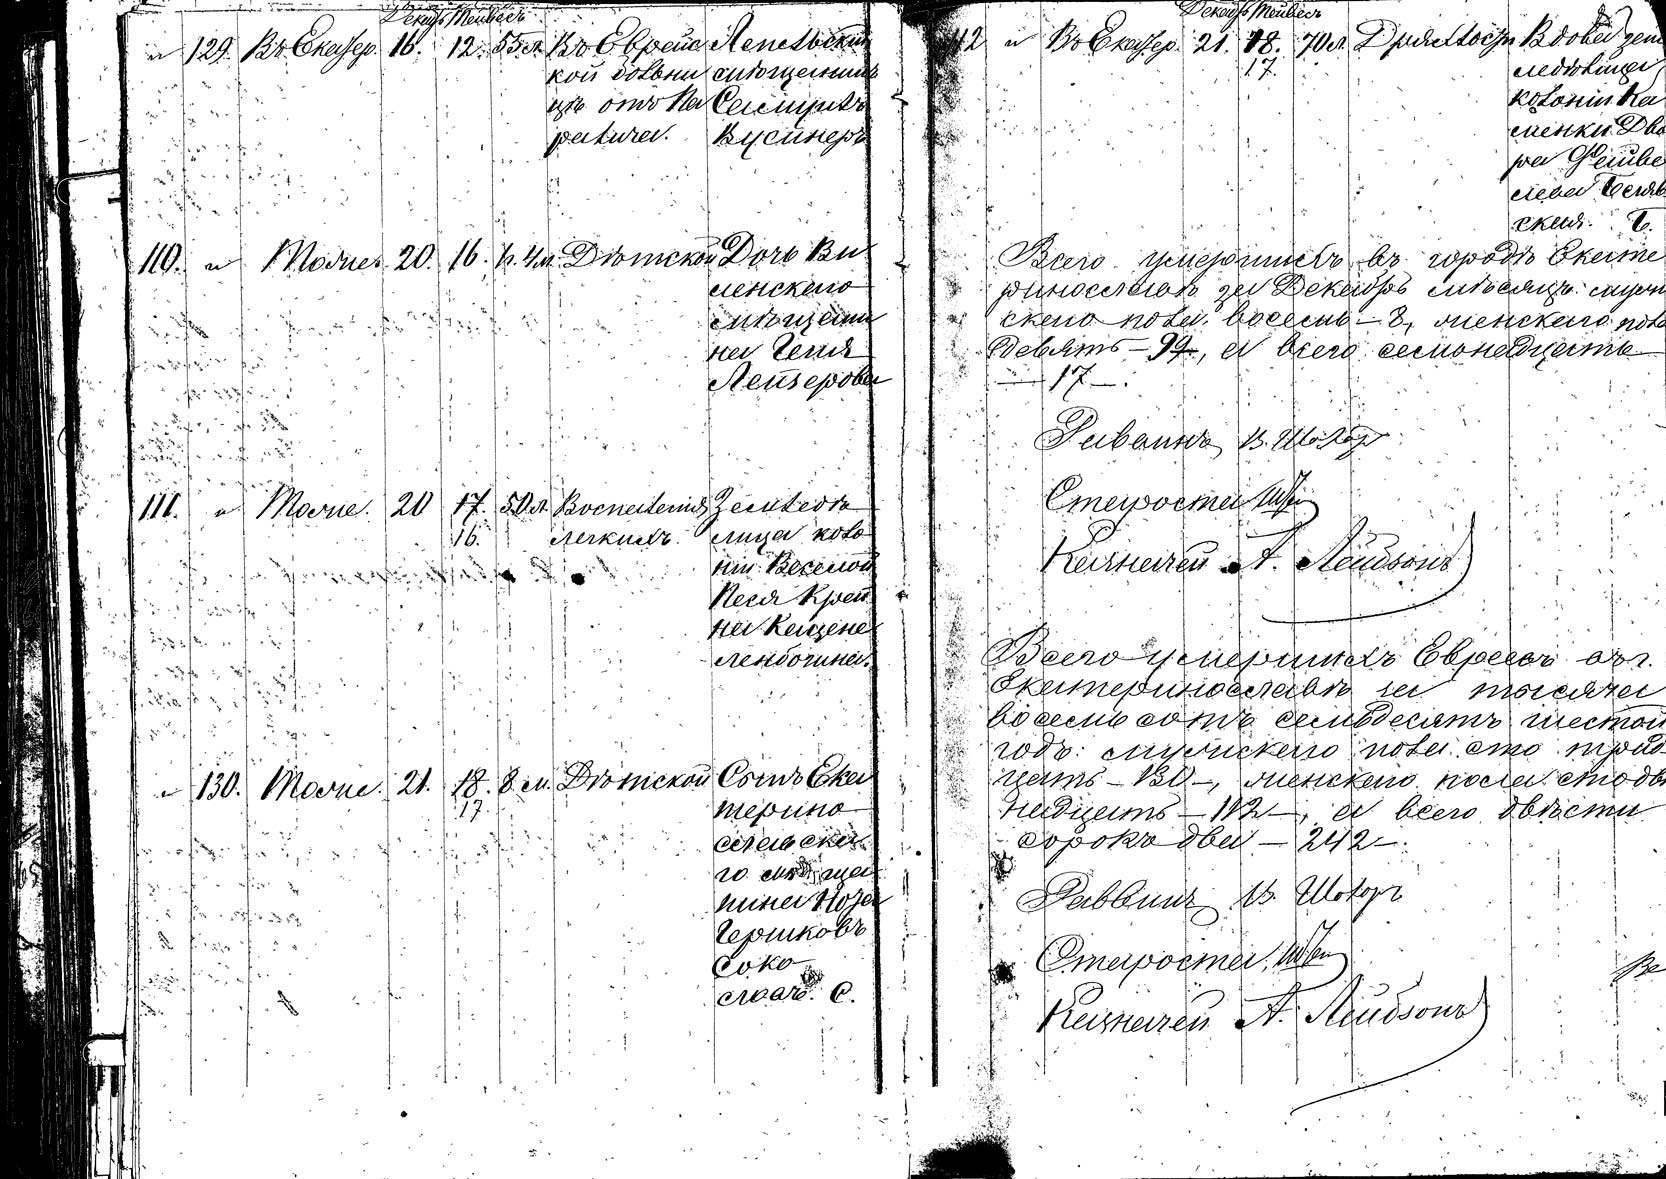 Декабрь Тейвесъ
" 129. Въ Екатер. 16. 12. 55 л. Въ Еврейс Лепельскій
кой больни мѣщанинъ
цѣ отъ Па Самуилъ
ралича. Кусинеръ
110. " Тоже. 20. 16. 4 м. Дѣтской Дочь Ви
ленскаго
мѣщани
на Геня
Лейзерова
111. " Тоже. 20 17. 50 л. Воспаленія Земледѣ
16. легкихъ. лица коло
ніи Веселой
Песя Крей
на Кацене
ленбогина.
" 130. Тоже. 21. 18. 8 м. Дѣтской Сынъ Ека
17. терино
славска
го мѣща
нина
Гершковъ
Соко
С.
Декабрь Тейвесъ
112 " Въ Екатер. 21. 18. 70 л. Вдова зем
17. ледѣлца
колоніи Ка
менки Дво
ра Фейве
лева Беляв
ская. Б.
Всего умершихъ въ городѣ Екате
ринославѣ за Декабрь мѣсяцъ: муж
скаго пола: восемь – 8, женскаго пола
девять – 9, а всего семьнадцать
– 17 –.
Раввинъ В. Шохоръ
Староста
Казначей А. Лейбзонъ
Всего умершихъ Евреевъ въ г.
Екатеринославѣ за тысяча
восемь сотъ семьдесятъ шестой
годъ: мужскаго пола сто трид
цать – 130 –, женскаго пола сто две
надцать – 112 –, а всего двѣсти
сорокъ два – 242 –.
Раввинъ В. Шохоръ
Староста
Казначей А. Лейбзонъ